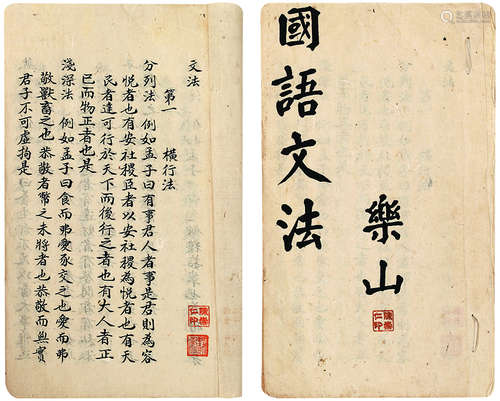 國語文法
樂山
文法
第一 橫行法
分列法 例如孟子曰有事君人者事是君則為容
悅者也有安社稷臣者以安社稷為悅者也有天
民者達可行於天下而後行之者也有大人者正
己而物正者也是
淺深法 例如孟子曰食而弗愛豕交之也愛而弗
敬獸畜之也恭敬者幣之未將者也恭敬而無實
君子不可虛拘是